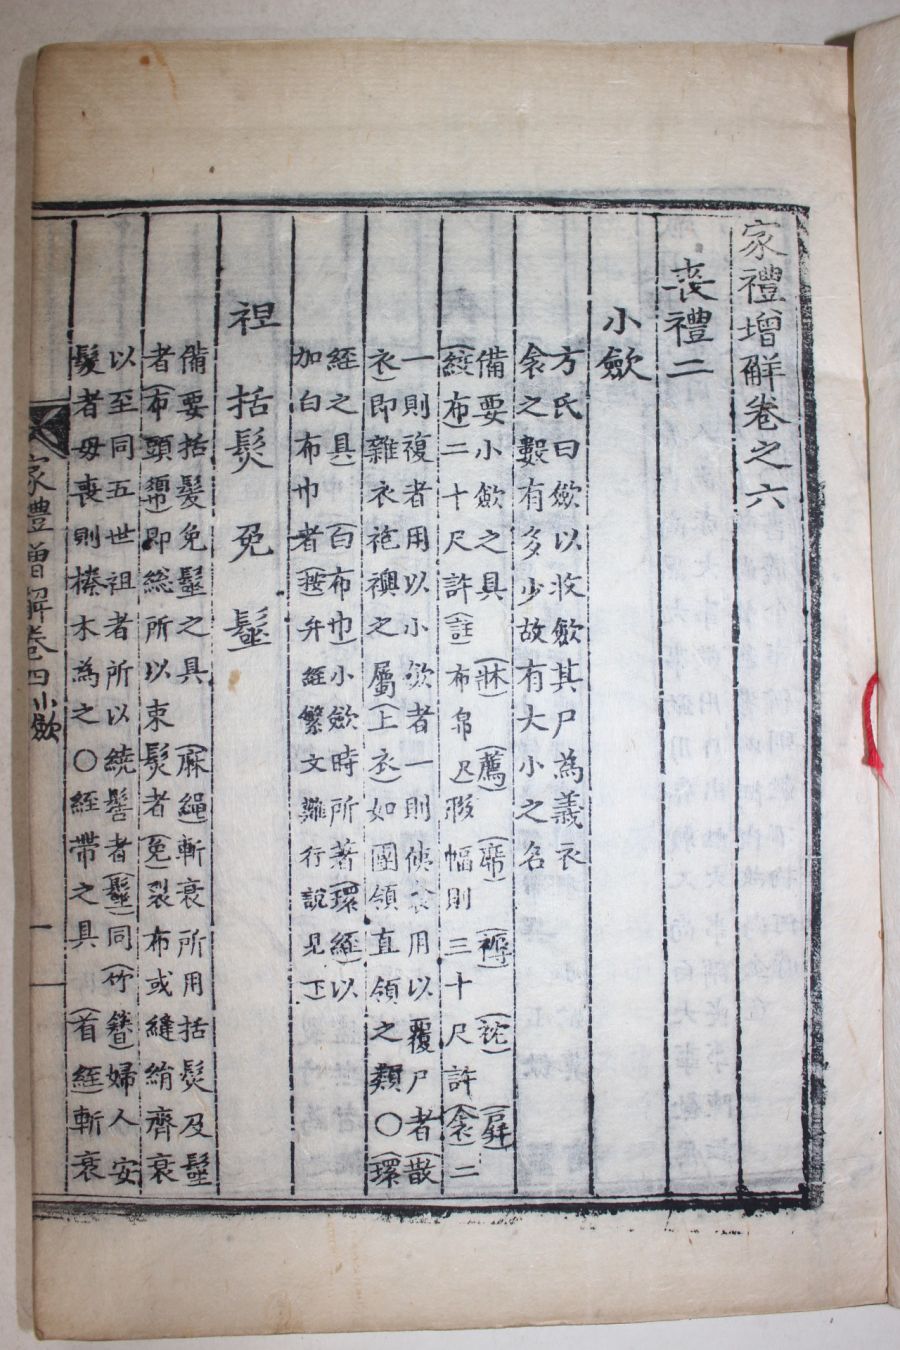 家禮增解卷之六
喪禮二
小斂
方氏曰斂以收斂其尸為義衣
衾之數有多少故有大小之名
備要小斂之具(牀)(薦)(席)(褥)(枕)(屛)
(絞布)二十尺許(註)布帛尺狹幅則三十尺許(衾)二
一則複者用以小斂者一則俠衾用以覆尸者(散
衣)即雜衣袍襖之屬(上衣)如團領直領之類○(環
絰之具)(白布巾)小斂時所著(環絰)以
加白布巾者(按)弁絰繁文難行說見下
袒 括髮 免 髽
備要括髮免髽之具(麻繩)斬衰所用括髮及髽
者(布頭𢄼)即緫所以束髮者(免)裂布或縫絹齊衰
以至同五世祖者所以繞髻者(髽)同(竹簪)婦人安
髮者母喪則榛木為之○絰帶之具(首絰)斬衰
家禮增解卷四 小斂 一